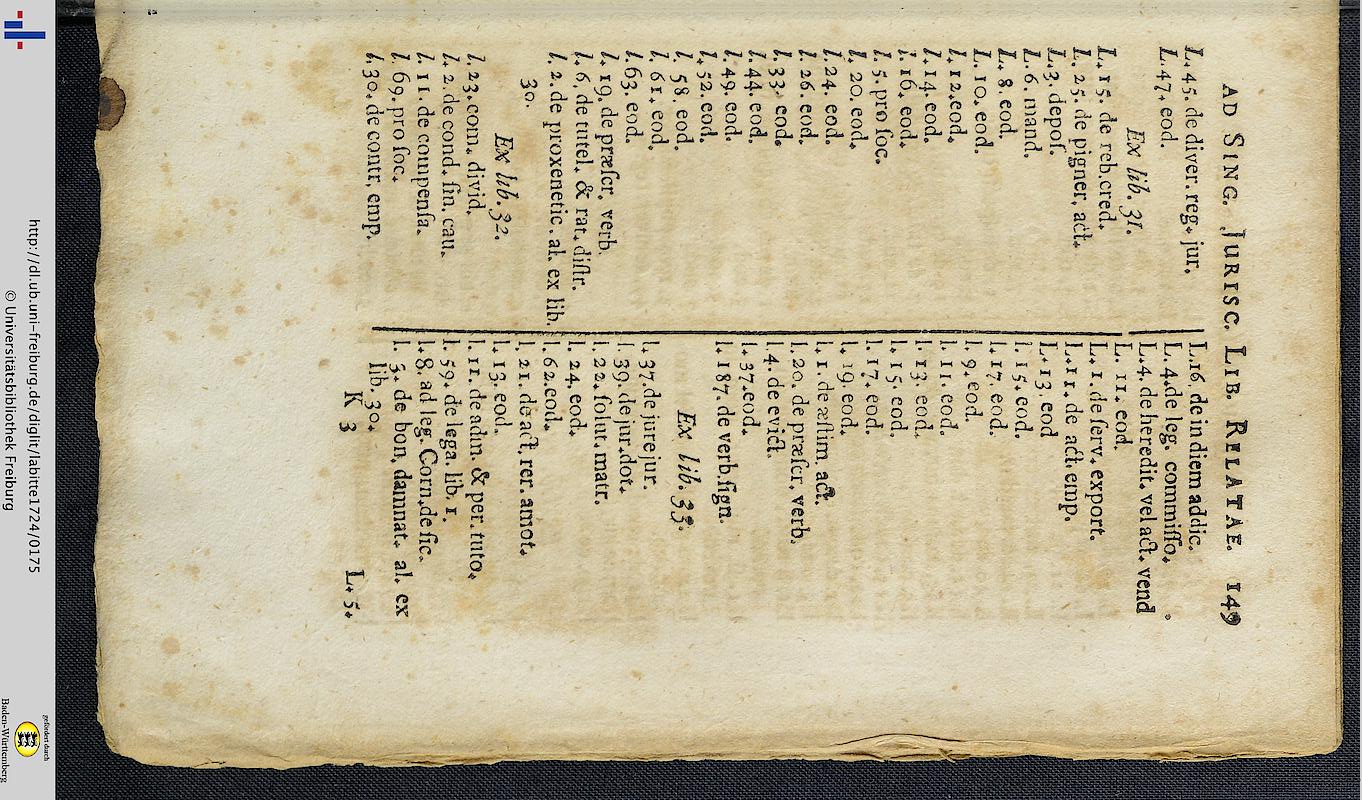 AD SING. JURISC. LIB. RELATAE. 149
L. 45. de diver. reg. jur.
L. 47. eod.
Ex lib. 31.
L. 15. de reb. cred.
L. 25. de pigner. act.
L. 3. depos.
L. 6. mand.
L. 8. eod.
L. 10. eod.
l. 12. eod.
l. 14. eod.
l. 16. eod.
l. 5. pro soc.
l. 20. eod.
l. 24. eod.
l. 26. eod.
l. 33. eod.
l. 44. eod.
l. 49. eod.
l. 52. eod.
l. 58. eod.
l. 61. eod.
l. 63. eod.
l. 19. de præscr. verb.
l. 6. de tutel. & rat. distr.
l. 2. de proxenetic. al. ex lib.
30.
Ex lib. 32.
l. 23. com. divid.
l. 2. de cond. sin. cau.
l. 11. de compensa.
l. 69. pro soc.
l. 30. de contr. emp.
L. 16. de in diem addic.
L. 4. de leg. commisso.
L. 4. de heredit. vel act. vend.
L. 11. eod.
L. 1. de serv. export.
L. 11. de act. emp.
L. 13. eod
l. 15. eod.
l. 17. eod.
l. 9. eod.
l. 11. eod.
l. 13. eod.
l. 15. eod.
l. 17. eod.
l. 19. eod.
l. 1. de æstim. act.
l. 20. de præscr. verb.
l. 4. de evict.
l. 37. eod.
l. 187. de verb. sign.
Ex lib. 33.
l. 37. de jure jur.
l. 39. de jur. dot.
l. 22. solut. matr.
l. 24. eod.
l. 62. eod.
l. 21. de act. rer. amot.
l. 13. eod.
l. 11. de adm. & per. tuto.
l. 59. de lega. lib. 1.
l. 8. ad leg. Corn. de sic.
l. 5. de bon. damnat. al. ex
lib. 30.
K 3
L. 5.
http://dl.ub.uni-freiburg.de/diglit/labitte1724/0175
© Universitätsbibliothek Freiburg
gefördert durch
Baden-Württemberg